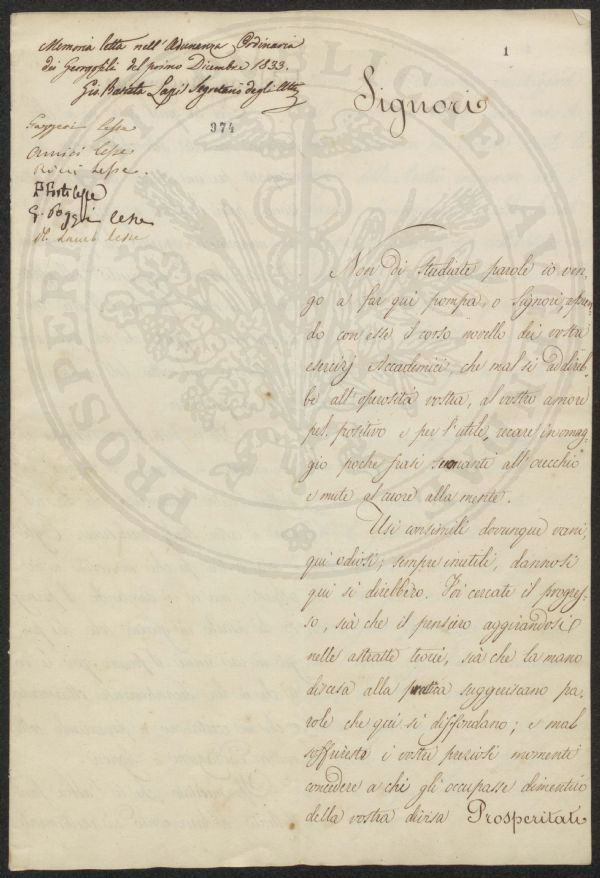 Memoria letta nell'Adunanza Ordinaria
dei Georgofili del primo Dicembre 1833.
Gio. Batista Lapi Segretario degli Atti
1
Signori
974
Gazzeri lesse
Amici lesse
Ricci lesse.
P. Forti lesse
G. Poggi lesse
lesse
Non di studiate parole io ven-
go a far qui pompa, o Signori, apren-
do con esse il corso novello dei vostri
esercizj Accademici, che mal si addireb-
be all'operosità vostra, al vostro amore
pel positivo e per l'utile, recare in omag-
gio poche frasi sonanti all'orecchio
e mute al cuore alla mente.
Usi consimili dovunque vani,
qui odiosi; sempre inutili, dannosi
qui si direbbero. Voi cercate il progres-
so, sia che il pensiero aggirandosi
nelle astratte teorie, sia che la mano
diresa alla pratica suggeriscano pa-
role che qui si diffondano; e mal
soffrireste i vostri preziosi momenti
concedere a chi gli occupasse dimentico
della vostra divisa Prosperitati
PROSPERITATI PUBLICAE AUGENDAE